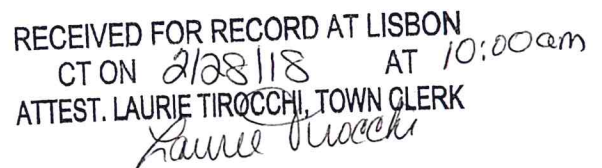 RECEIVED FOR RECORD AT LISBON
CT ON 2/28/18 AT 10:00am
ATTEST. LAURIE TIROCCHI, TOWN CLERK
Laurie Tirocchi